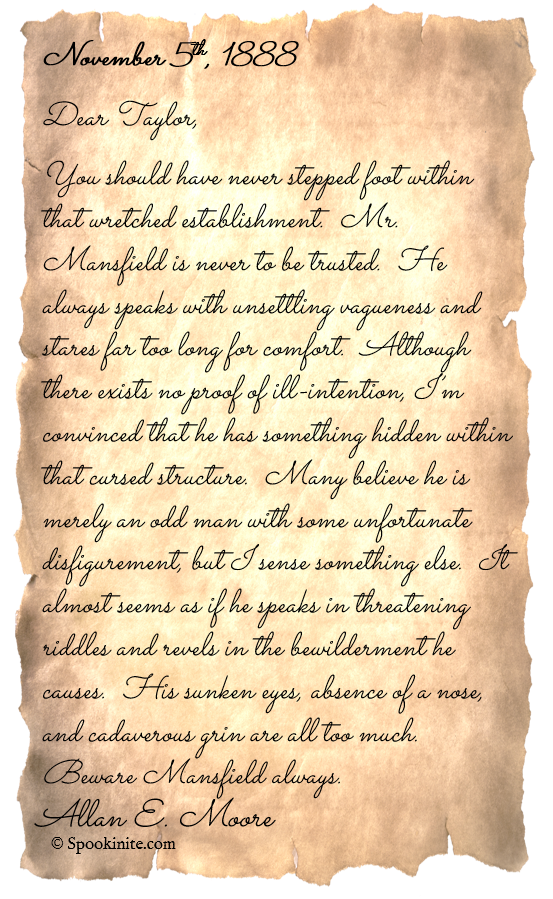 November 5th, 1888
Dear Taylor,
You should have never stepped foot within
that wretched establishment. Mr.
Mansfield is never to be trusted. He
always speaks with unsettling vagueness and
stares far too long for comfort. Although
there exists no proof of ill-intention, I'm
convinced that he has something hidden within
that cursed structure. Many believe he is
merely an odd man with some unfortunate
disfigurement, but I sense something else. It
almost seems as if he speaks in threatening
riddles and revels in the bewilderment he
causes. His sunken eyes, absence of a nose,
and cadaverous grin are all too much.
Beware Mansfield always.
Allan E. Moore
© Spookinite.com